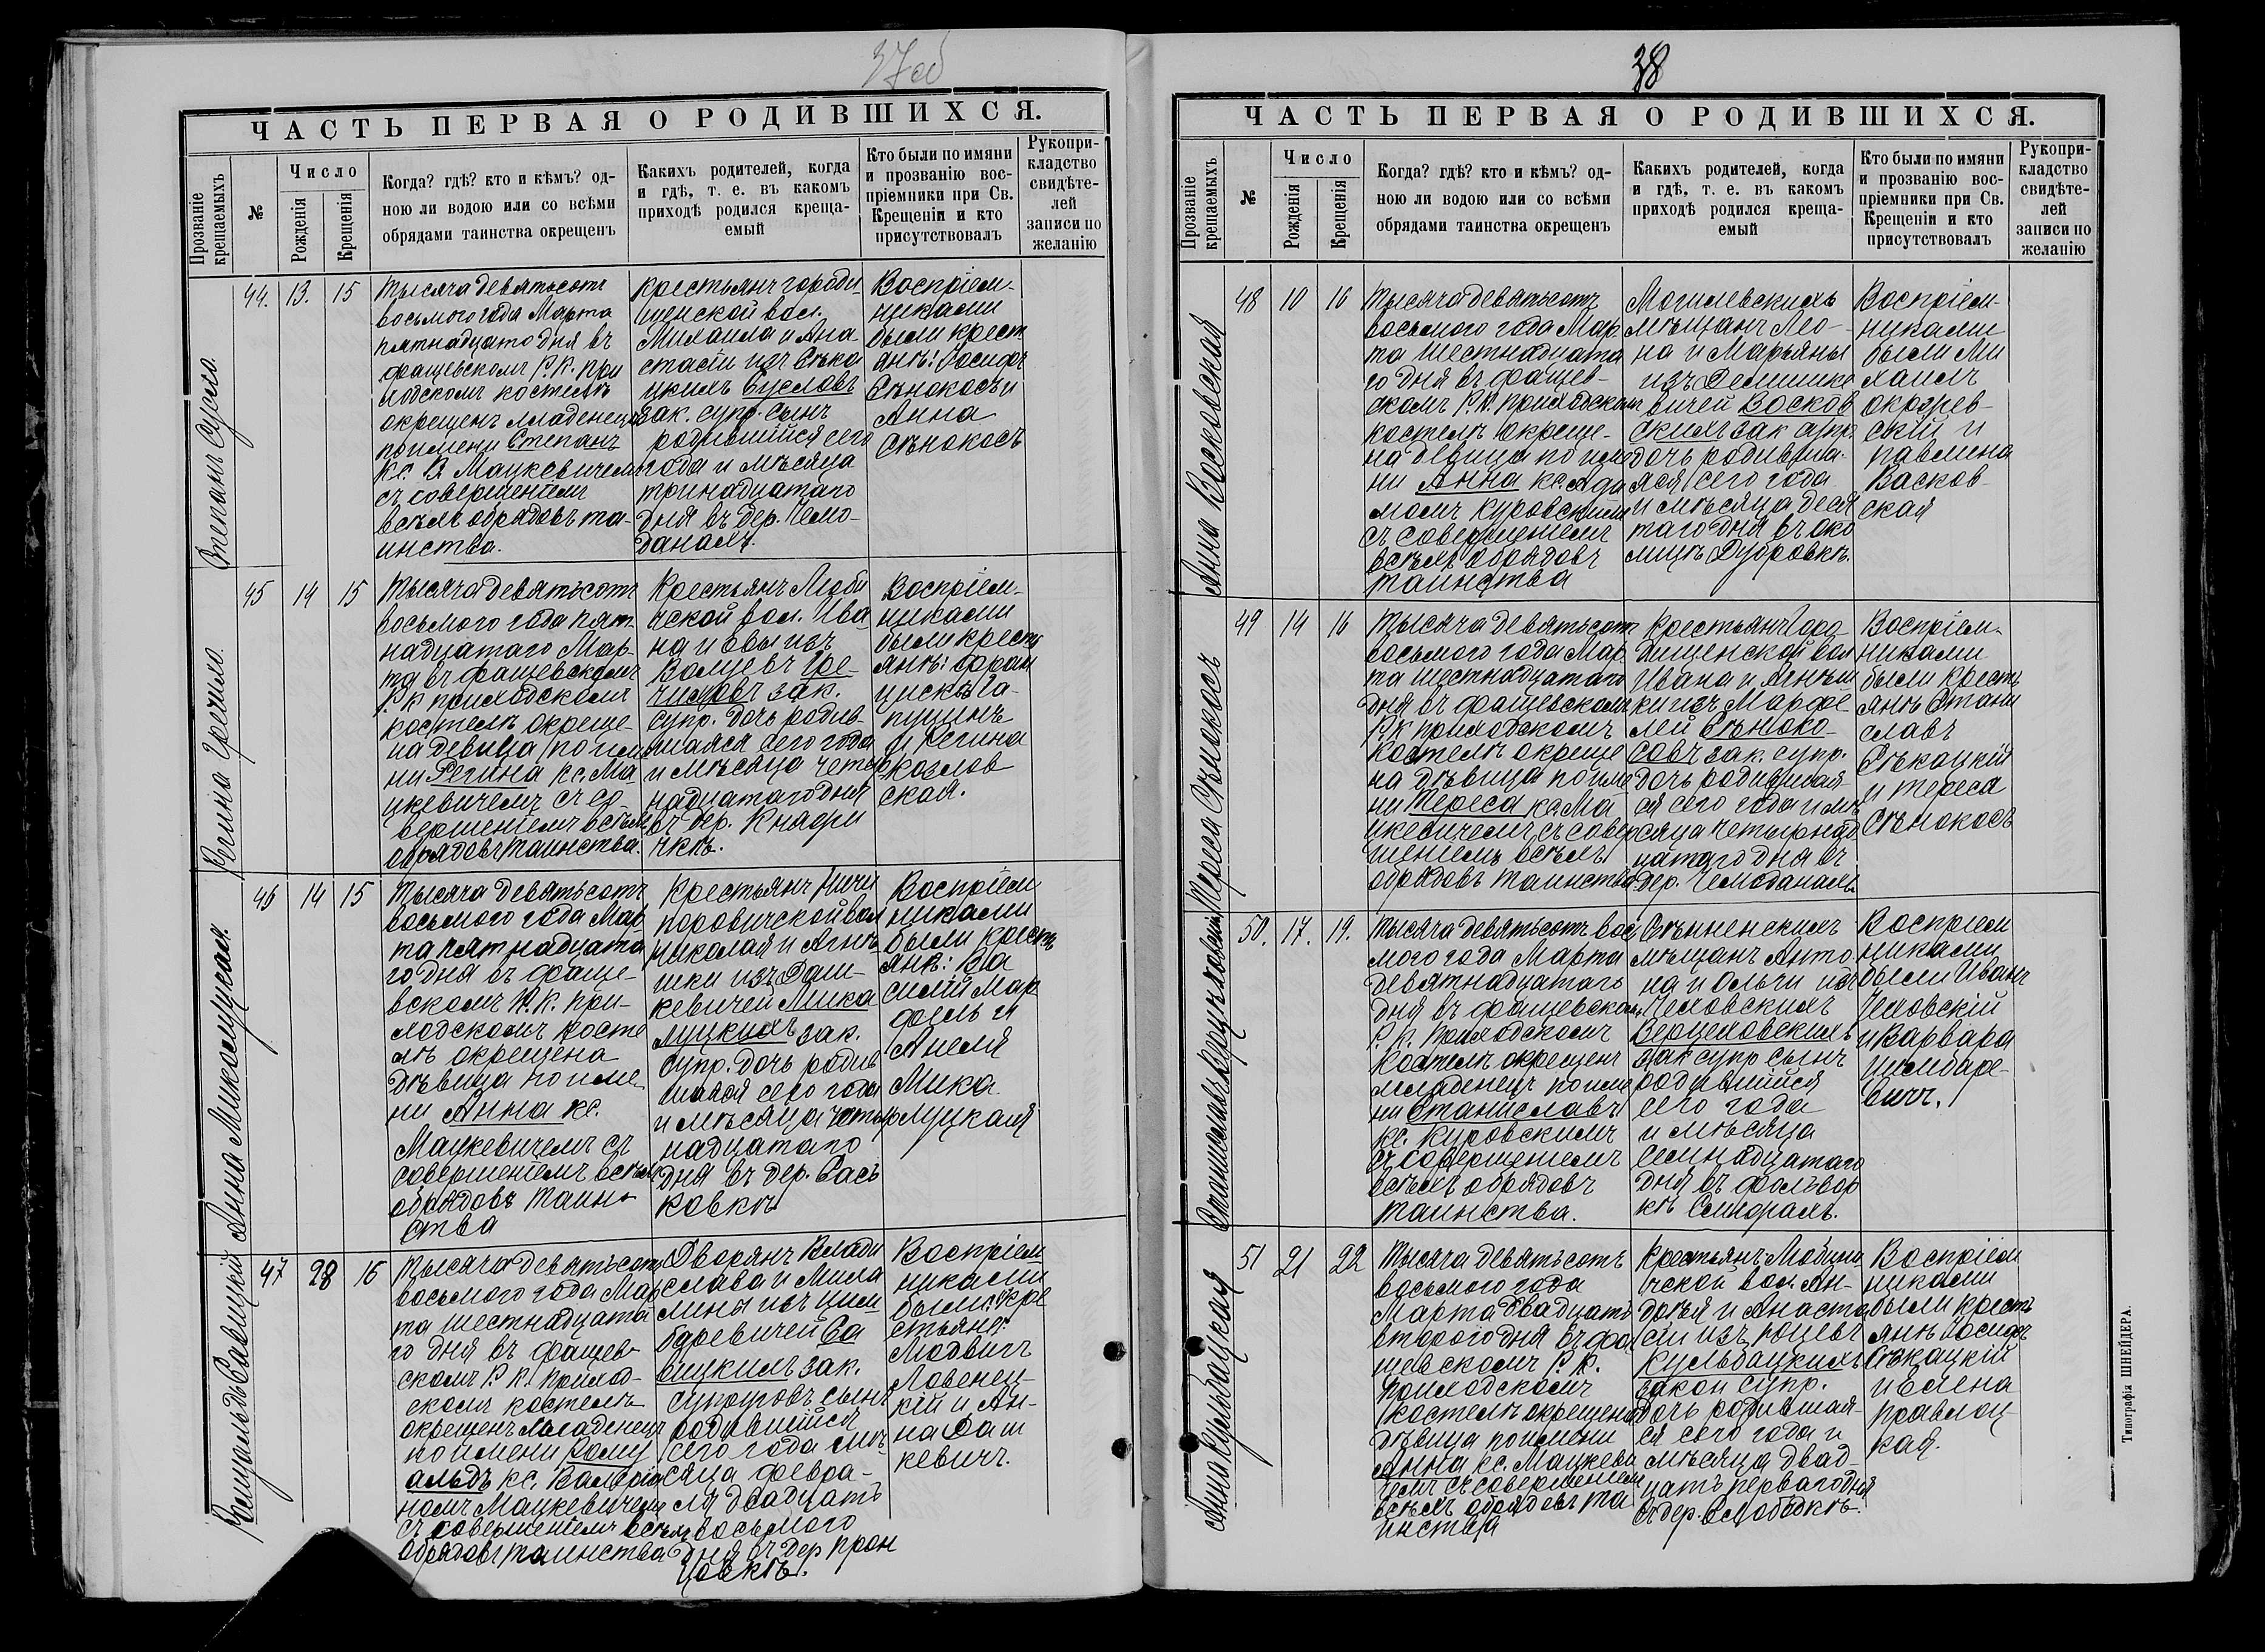 37об
ЧАСТЬ ПЕРВАЯ О РОДИВШИХСЯ.
Прозваніе крещаемыхъ
№
Число
Рожденія
Крещенія
Когда? гдѣ? кто и кѣмъ? од-
ною ли водою или со всѣми
обрядами таинства окрещенъ
Какихъ родителей, когда
и гдѣ, т. е. въ какомъ
приходѣ родился креща-
емый
Кто были по имяни
и прозванію вос-
пріемники при Св.
Крещеніи и кто
присутствовалъ
Рукопри-
кладство
свидѣте-
лей
записи по
желанію
Степанъ Сусло.
44.
13.
15
Тысяча девятьсотъ
восьмого года Марта
пятнадцато дня въ
фащевскомъ Р. К. при
ходскомъ костелѣ
окрещенъ младенецъ
по имени Степанъ
кс. В Мацкевичемъ
съ совершеніемъ
всѣхъ обрядовъ та-
инства.
крестьянъ городи-
щенской вол.
Михаила и Ана-
стасіи изъ Сѣко
цкихъ Сусловъ
зак. супр. сынъ
родившійся сего
года и мѣсяца
тринадцатаго
дня въ дер. Чемо-
данахъ.
Воспріем-
никами
были крест
янѣ: Іосифъ
Сѣнокосъ и
Анна
Сѣнокосъ
Регина Гречихо.
45
14
15
Тысяча девятьсотъ
восьмого года пят-
надцатаго Мар-
та въ фащевскомъ
Р К приходскомъ
костелѣ окреще-
на девица по име
ни Регина кс. Ма
цкевичемъ съ со-
вершеніемъ всѣхъ
обрядовъ таинства.
Крестьянъ Люби
чской вол. Ива-
на и Евы изъ
Волцевъ Гре-
чиховъ зак.
супр. дочь родив-
шаяся сего года
и мѣсяца четыр
надцатаго дня
въ дер. Кнафи
чкѣ.
Воспріем-
никами
были кресть
янѣ: фран
цискъ Га-
пущинъ
и Регина
Козлов
ская.
Анна Микалуцкая.
46
14
15
Тысяча девятьсотъ
восьмого года Мар
та пятнадцата
го дня въ фаще-
вскомъ Р. К. при-
ходскомъ косте
лѣ окрещена
дѣвица по име-
ни Анна кс.
Мацкевичемъ съ
совершеніемъ всѣхъ
обрядовъ таин-
ства
Крестьянъ Ничи
поровичской вол
Николая и Агнѣ
шки изъ Даш-
кевичей Мика
луцкихъ зак.
супр. дочь родив
шаяся сего года
и мѣсяца четыр
надцатаго
дня въ дер. Вась
ковкѣ
Воспріем
никами
были кресть
янѣ: Ва
силій Мар
фель и
Анеля
Мика
луцкая
Ромуальдъ Савицкій
47
28
16
Тысяча девятьсотъ
восьмого года Мар
та шестнадцата
го дня въ фащев-
скомъ Р. К. приход-
скомъ костелѣ
окрещенъ младенецъ
по имени Рому
альдъ кс. Валеріа
номъ Мацкевичемъ
съ совершеніемъ всѣхъ
обрядовъ таинства
Дворянъ Влади
слава и Мила
лины изъ Цим-
баревичей Са
вицкихъ зак.
супруговъ сынъ
родившійся
сего года мѣ-
сяца февра-
ля двадцать
восьмого
дня въ дер Прон
цовкѣ.
Воспріем
никами
были: кре
стьяне:
Людвигъ
Ловенец-
кій и Ан-
на Даш
кевичъ.
38
ЧАСТЬ ПЕРВАЯ О РОДИВШИХСЯ.
Прозваніе крещаемыхъ
№
Число
Рожденія
Крещенія
Когда? гдѣ? кто и кѣмъ? од-
ною ли водою или со всѣми
обрядами таинства окрещенъ
Какихъ родителей, когда
и гдѣ, т. е. въ какомъ
приходѣ родился креща-
емый
Кто были по имяни
и прозванію вос-
пріемники при Св.
Крещеніи и кто
присутствовалъ
Рукопри-
кладство
свидѣте-
лей
записи по
желанію
Анна Восковская
48
10
16
Тысяча девятьсотъ
восьмого года Мар
та шестнадцата
го дня въ фащев-
скомъ Р. К. приходскомъ
костелѣ окреще-
на девица по име
ни Анна кс. Ада
момъ Куровскимъ
съ совершеніемъ
всѣхъ обрядовъ
таинства
Могилевскихъ
мѣщанъ Лео-
на и Марьяны
изъ Демишке
вичей Восков
скихъ зак супр.
дочь родивша-
яся сего года
и мѣсяца деся
таго дня въ око
лицѣ Дубровкѣ.
Воспріем-
никами
были Ми
хаилъ
окохрев-
скій и
Павлина
Васков-
ская
Тереса Сѣнокосъ
49
14
16
Тысяча девятьсотъ
восьмого года Мар
та шестнадцатаго
дня въ фащевскомъ
Р. К приходскомъ
костелѣ окреще
на дѣвица по име
ни Тереса кс. Ма
цкевичемъ съ совер
шеніемъ всѣхъ
обрядовъ таинства.
Крестьянъ Горо
дищенской вол
Ивана и Агнѣш
ки изъ Марфе
лей Сѣноко-
совъ зак. супр.
дочь родившая-
ся сего года и мѣ
сяца четырнад
цатаго дня въ
дер. Чемоданахъ
Воспріем-
никами
были кресть
янѣ Стани
славъ
Сѣкацкій
и Тереса
Сѣнокосъ
Станиславъ Верцеховскій
50.
17.
19.
Тысяча девятьсотъ вось
мого года Марта
девятнадцатаго
дня въ фащевскомъ
Р. К. приходскомъ
костелѣ окрещенъ
младенецъ по име
ни Станиславъ
кс. Куровскимъ
съ совершеніемъ
всѣхъ обрядовъ
таинства.
Сѣнненскихъ
мѣщанъ Анто
на и Ольги изъ
Чеховскихъ
Верцеховскихъ
зак супр сынъ
родившійся
сего года
и мѣсяца
семнадцатаго
дня въ фольвар
кѣ Синорахъ.
Воспріем
никами
были Иванъ
Чеховскій
и Варвара
Цимбаре-
вичъ.
Анна Кульбацкая
51
21
22
Тысяча девятьсотъ
восьмого года
Марта двадцать
второго дня въ фа
щевскомъ Р. К.
приходскомъ
костелѣ окрещена
дѣвица по имени
Анна кс. Мацкеви
чемъ съ совершеніемъ
всѣхъ обрядовъ та
инства
Крестьянъ Любини
чской вол. Ан-
дрея и Анаста
сіи изъ Юцевъ
Кульбацкихъ
закон супр.
дочь родившая-
ся сего года и
мѣсяца двад-
цать перваго дня
въ дер. Слободкѣ.
Воспріем
никами
были кресть
янѣ Іосифъ
Сѣкацкій
и Елена
Правлоц-
кая.
Типографія ШНЕЙДЕРА.